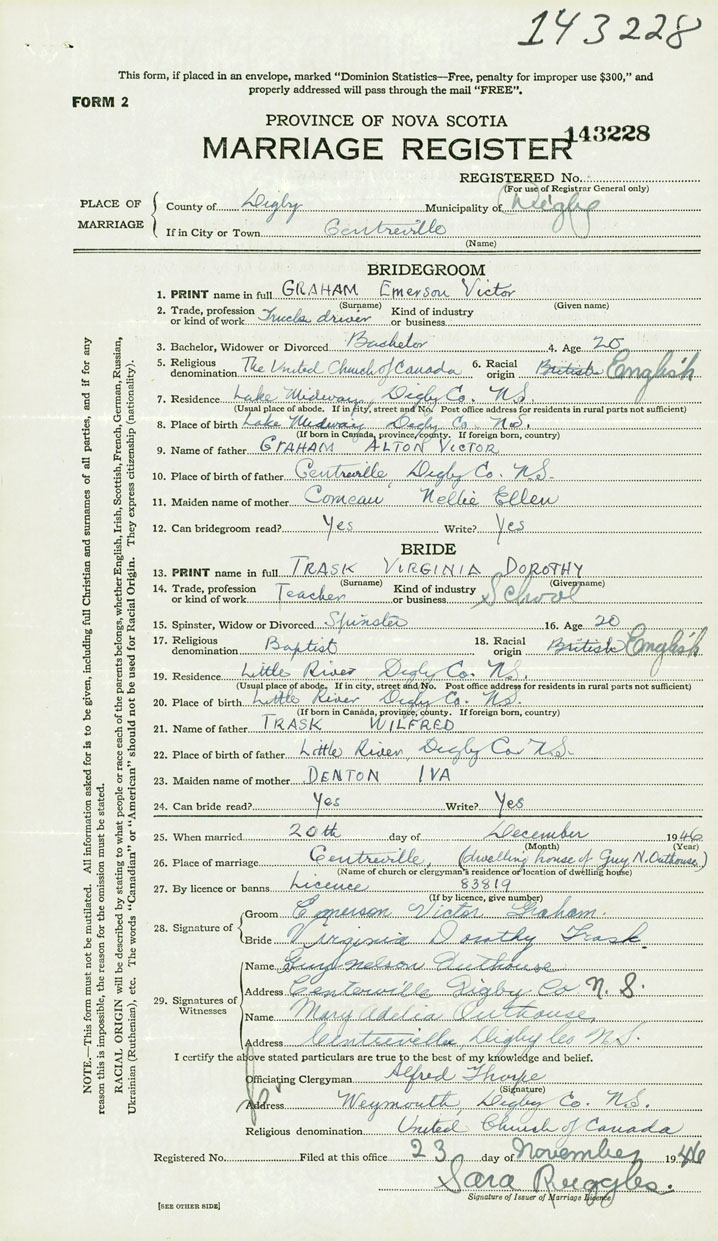 143228
This form, if placed in an envelope, marked "Dominion Statistics—Free, penalty for improper use $300," and
properly addressed will pass through the mail "FREE".
FORM 2
PROVINCE OF NOVA SCOTIA
MARRIAGE REGISTER
143228
REGISTERED No.
(For use of Registrar General only)
PLACE OF MARRIAGE
County of Digby Municipality of Digby
If in City or Town Centreville
(Name)
BRIDEGROOM
1. PRINT name in full GRAHAM Emerson Victor
(Surname) (Given name)
2. Trade, profession or kind of work Truck driver Kind of industry or business
3. Bachelor, Widower or Divorced Bachelor 4. Age 20
5. Religious denomination The United Church of Canada 6. Racial origin British English
7. Residence Lake Midway, Digby Co. N.S.
(Usual place of abode. If in city, street and No. Post office address for residents in rural parts not sufficient)
8. Place of birth Lake Midway Digby Co. N.S.
(If born in Canada, province, county. If foreign born, country)
9. Name of father GRAHAM ALTON VICTOR
10. Place of birth of father Centreville, Digby Co. N.S.
11. Maiden name of mother Comeau Nellie Ellen
12. Can bridegroom read? Yes Write? Yes
BRIDE
13. PRINT name in full TRASK VIRGINIA DOROTHY
(Surname) (Given name)
14. Trade, profession or kind of work Teacher Kind of industry or business School
15. Spinster, Widow or Divorced Spinster 16. Age 20
17. Religious denomination Baptist 18. Racial origin British English
19. Residence Little River, Digby Co. N.S.
(Usual place of abode. If in city, street and No. Post office address for residents in rural parts not sufficient)
20. Place of birth Little River Digby Co. N.S.
(If born in Canada, province, county. If foreign born, country)
21. Name of father TRASK WILFRED
22. Place of birth of father Little River, Digby Co. N.S.
23. Maiden name of mother DENTON IVA
24. Can bride read? Yes Write? Yes
25. When married 20th day of December 1946
(Month) (Year)
26. Place of marriage Centreville, (dwelling house of Guy N. Outhouse)
(Name of church or clergyman's residence or location of dwelling house)
27. By licence or banns Licence 83819
(If by licence, give number)
28. Signature of
Groom Emerson Victor Graham.
Bride Virginia Dorothy Trask.
29. Signatures of Witnesses
Name Guy Nelson Outhouse
Address Centerville Digby Co N. S.
Name Mary Adelia Outhouse
Address Centreville Digby Co N.S.
I certify the above stated particulars are true to the best of my knowledge and belief.
Officiating Clergyman Alfred Thorpe
(Signature)
Address Weymouth, Digby Co. N.S.
Religious denomination United Church of Canada
Registered No. Filed at this office 23 day of November 1946
Sara Ruggles.
Signature of Issuer of Marriage Licence
[SEE OTHER SIDE]
NOTE.—This form must not be mutilated. All information asked for is to be given, including full Christian and surnames of all parties, and if for any
reason this is impossible, the reason for the omission must be stated.
RACIAL ORIGIN will be described by stating to what people or race each of the parents belongs, whether English, Irish, Scottish, French, German, Russian,
Ukrainian (Ruthenian), etc. The words "Canadian" or "American" should not be used for Racial Origin. They express citizenship (nationality).